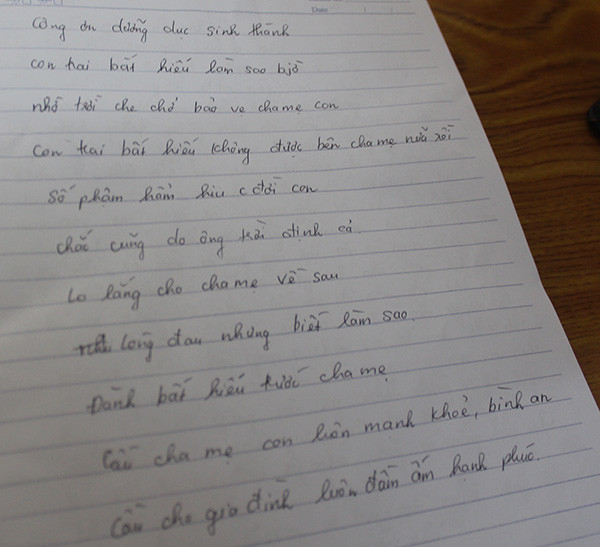 Công ơn dưỡng dục sinh thành
con trai bất hiếu làm sao bjờ
nhờ trời che chở bảo vệ cha mẹ con
Con trai bất hiếu không được bên cha mẹ nữa rồi
Số phậm hẩm hiu c đời con
chắc cũng do ông trời định cả
Lo lắng cho cha mẹ về sau
lòng đau nhưng biết làm sao
Đành bất hiếu trước cha mẹ
Cầu cha mẹ con luôn mạnh khoẻ, bình an
Cầu cho gia đình luôn đầm ấm hạnh phúc.